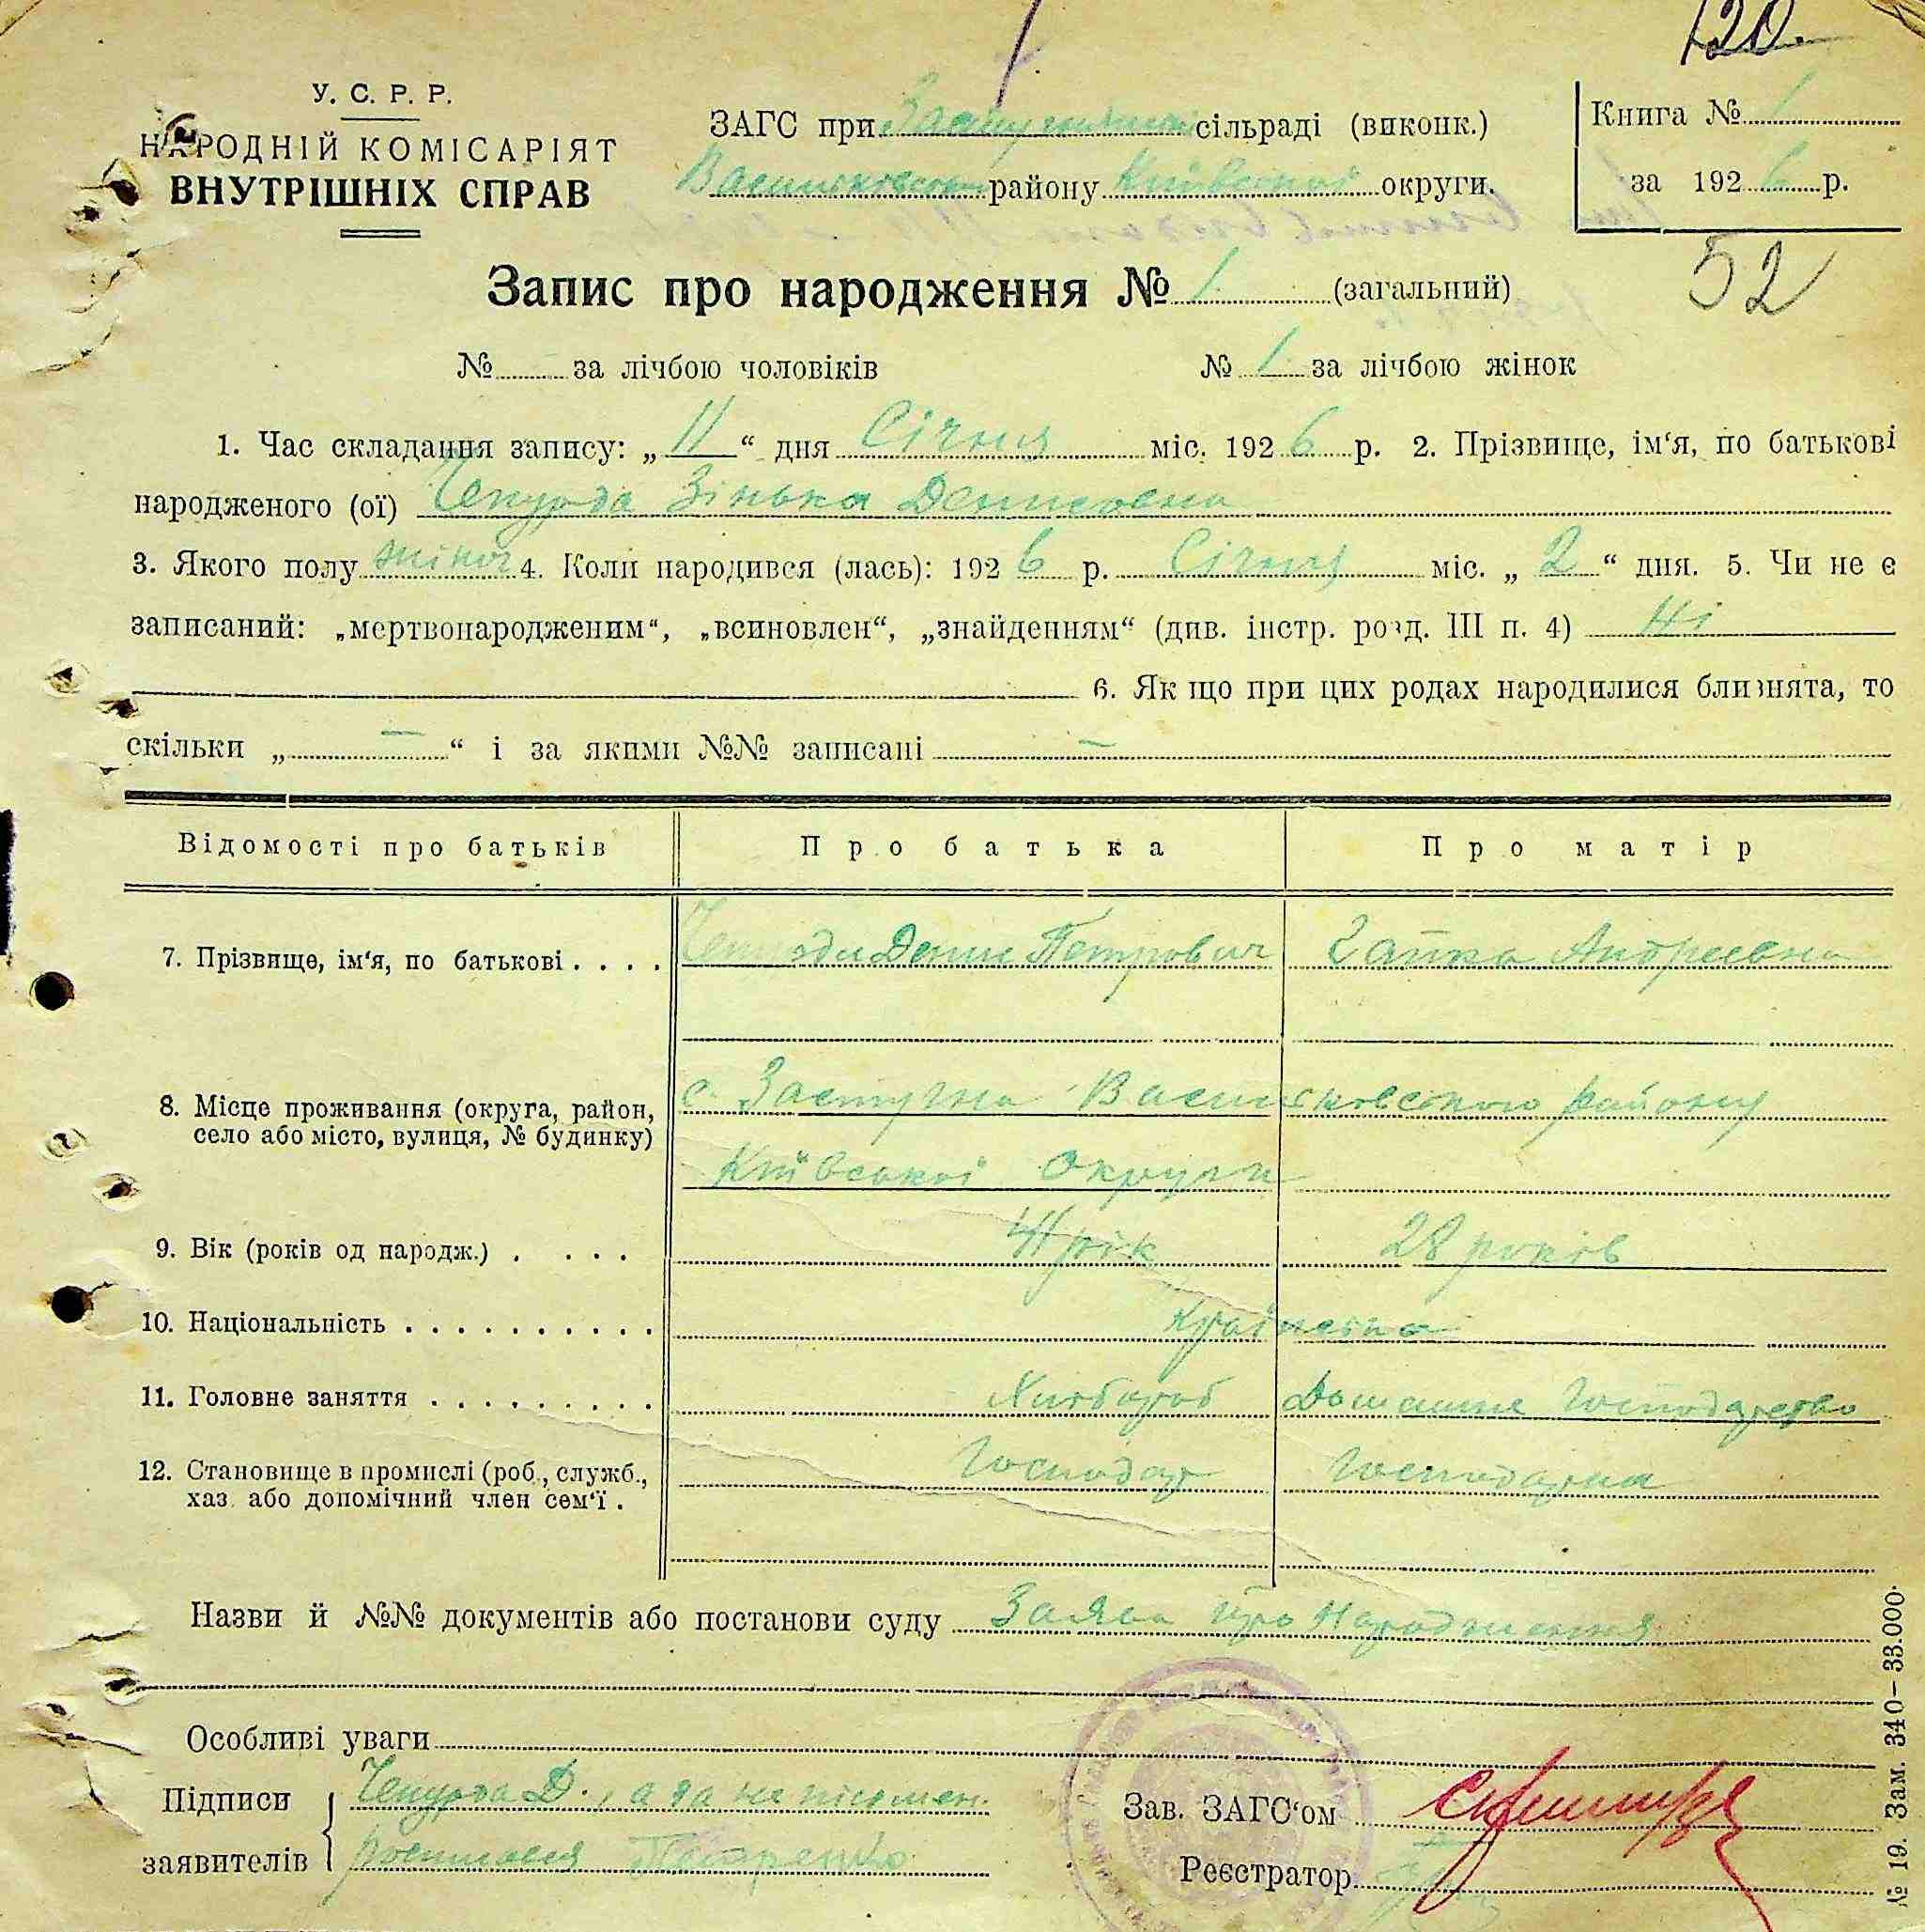 120.
У. С. Р. Р.
НАРОДНІЙ КОМІСАРІЯТ
ВНУТРІШНІХ СПРАВ
ЗАГС при сільраді (виконк.)
району Київської округи.
Книга № 1
за 1926 р.
52
Запис про народження № 1 (загальний)
№ - за лічбою чоловіків № 1 за лічбою жінок
1. Час складання запису: „ 11 “ дня Січня міс. 1926 р. 2. Прізвище, ім‘я, по батькові
народженого (ої) Чепурда Зінька Денисовна
3. Якого полу жіноч 4. Коли народився (лась): 1926 р. Січня міс. „ 2 “ дня. 5. Чи не є
записаний: „мертвонародженим“, „всиновлен“, „знайденням“ (див. інстр. розд. III п. 4) Ні
6. Як що при цих родах народилися близнята, то
скільки „ — “ і за якими №№ записані —
Відомості про батьків Про батька Про матір
7. Прізвище, ім‘я, по батькові . . . . Денис Петрович Гапка Андреевна
8. Місце проживання (округа, район,
село або місто, вулиця, № будинку)
с. Застугна Васильковського району
Київської Округи
9. Вік (років од народж.) . . . . 41 рік 28 років
10. Національність . . . . . . . . . .
11. Головне заняття . . . . . . . . . Хлібороб Домашнє Господарство
12. Становище в промислі (роб., служб., Господар Господарка
хаз. або допомічний член сем‘ї .
Назви й №№ документів або постанови суду Заява про Народження
Особливі уваги
Підписи Чепурда Д., а за не письмен.
заявителів
Зав. ЗАГС‘ом
Реєстратор
№ 19. Зам. 340–33.000.